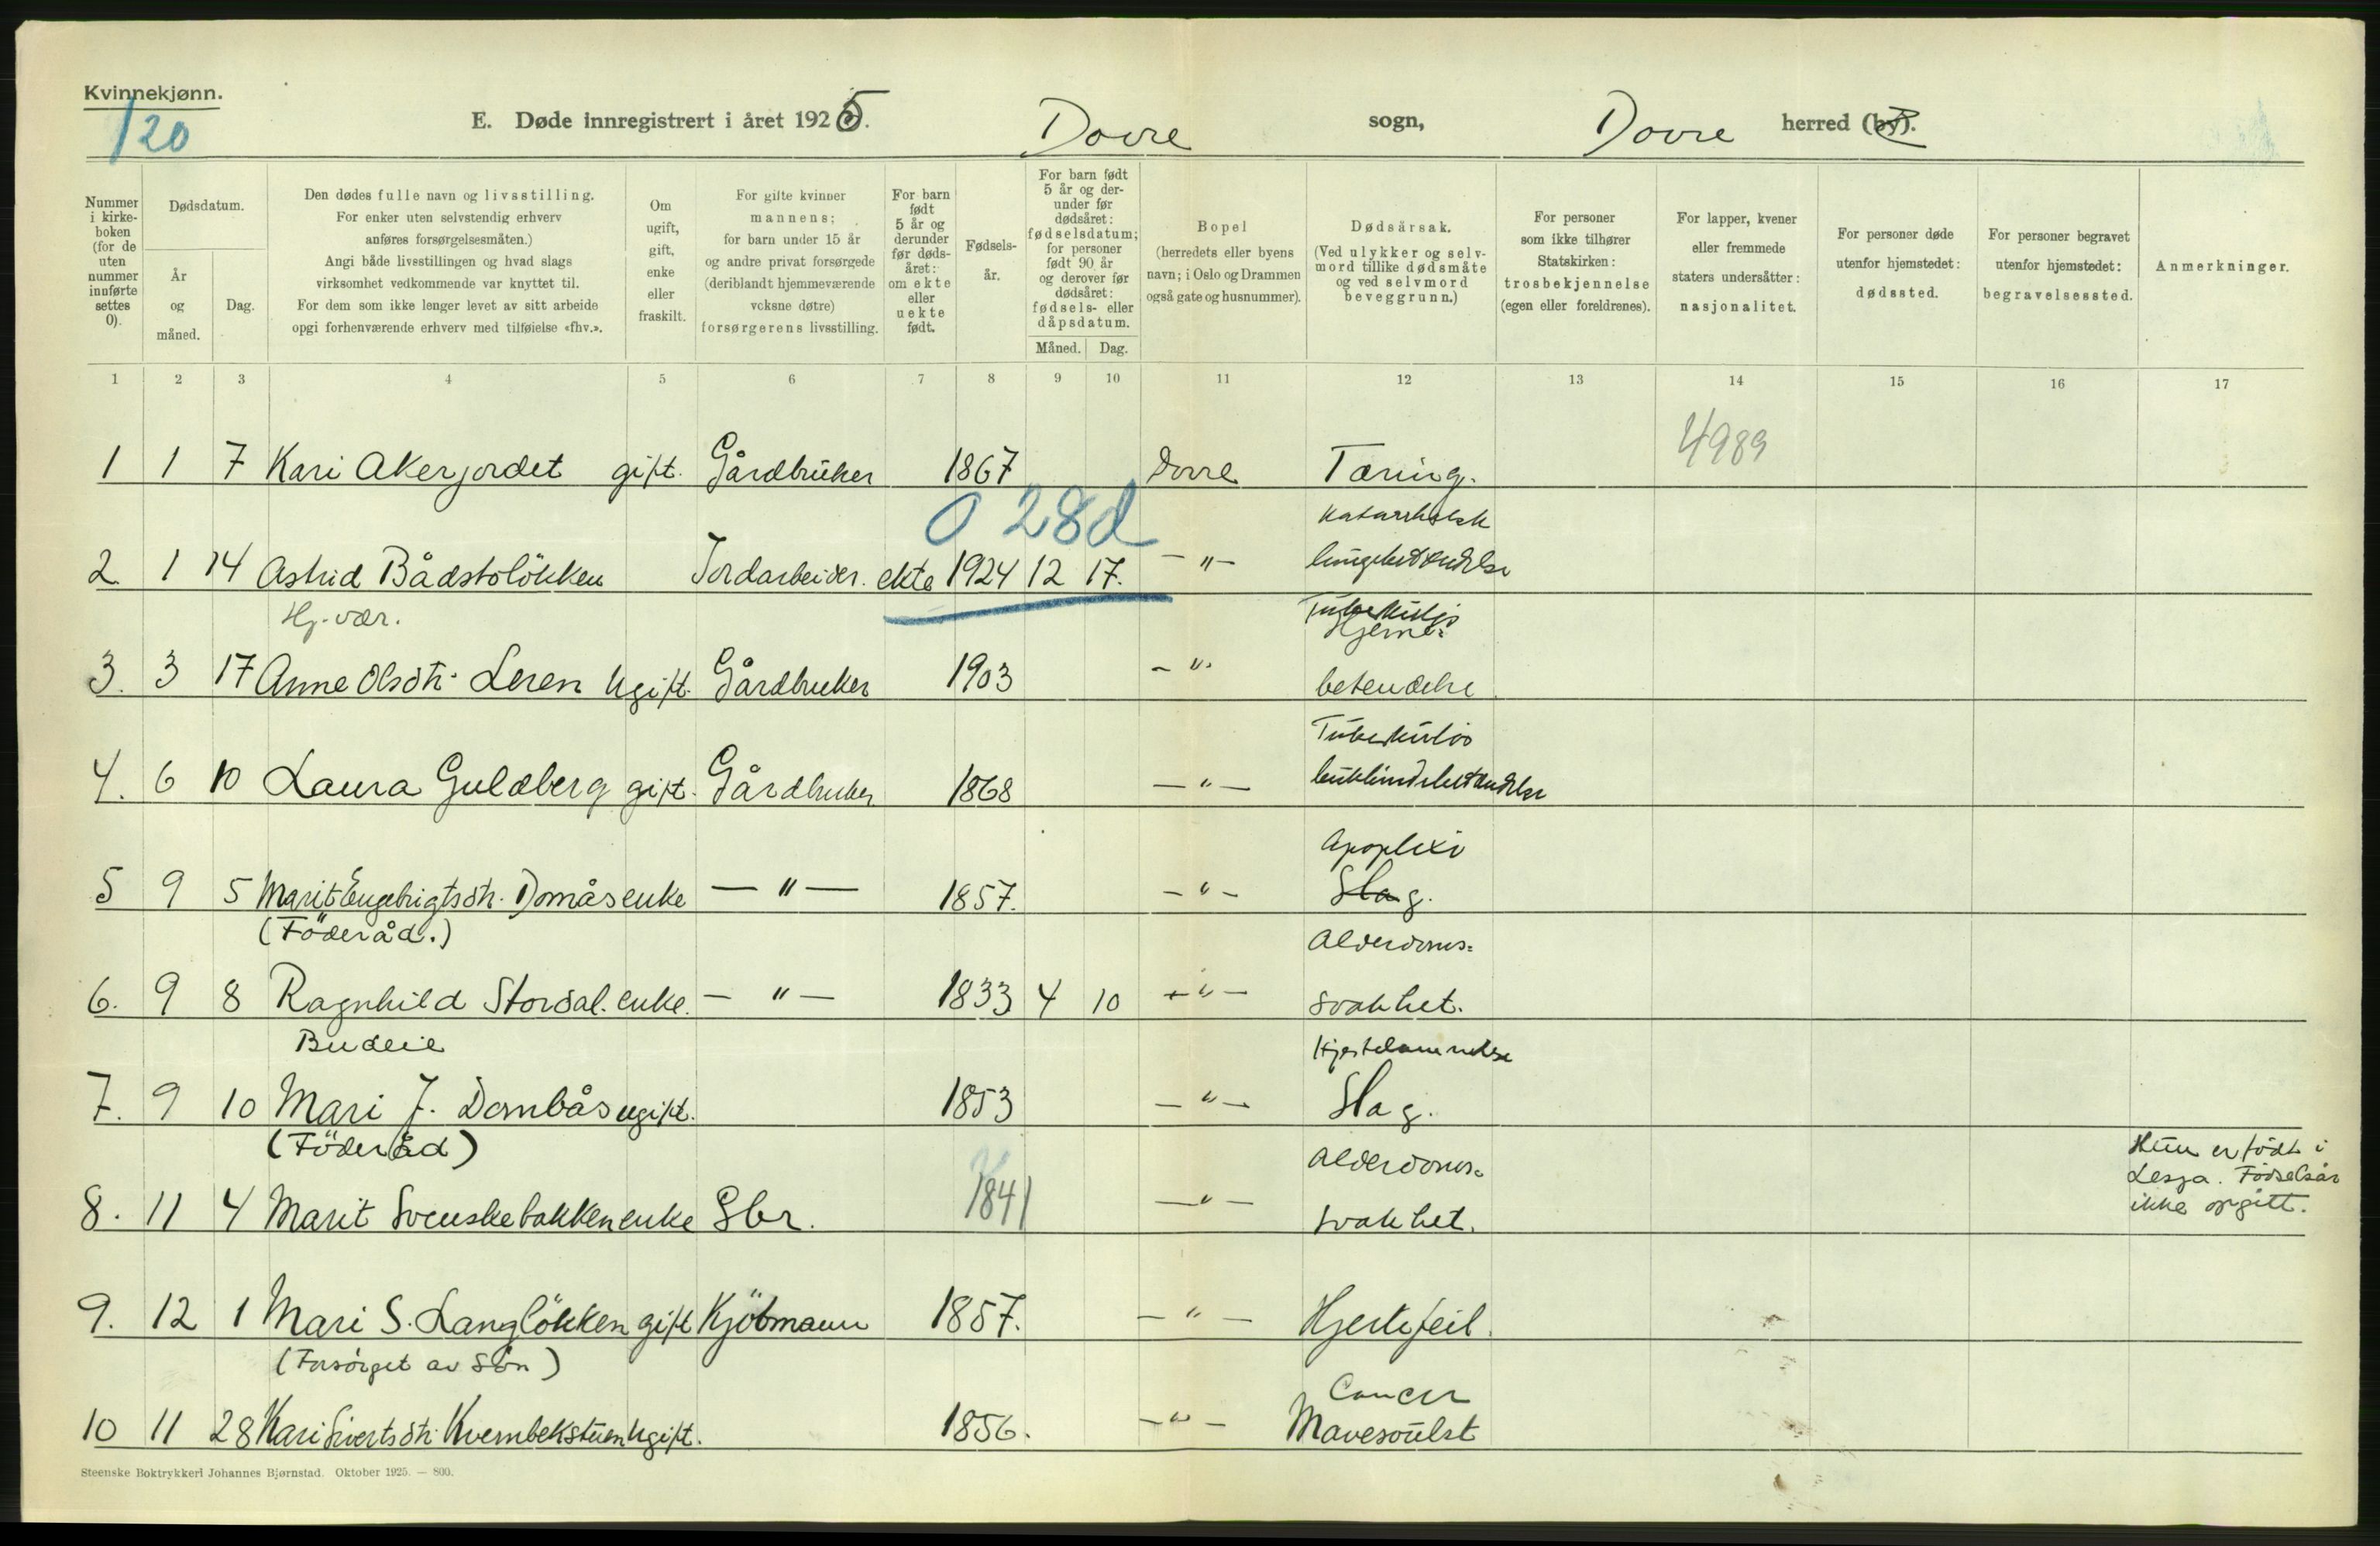 Kvinnekjønn.
120
E. Døde innregistrert i året 1925. Dovre sogn, Dovre herred (by).
Nummer i kirkeboken (for de uten nummer innførte settes 0).
Dødsdatum.
År og måned.
Dag.
Den dødes fulle navn og livsstilling.
For enker uten selvstendig erhverv
anføres forsørgelsesmåten.)
Angi både livsstillingen og hvad slags
virksomhet vedkommende var knyttet til.
For dem som ikke lenger levet av sitt arbeide
opgi forhenværende erhverv med tilføielse «fhv.».
Om ugift, gift, enke eller fraskilt.
For gifte kvinner
mannens;
for barn under 15 år
og andre privat forsørgede
(deriblandt hjemmeværende
voksne døtre)
forsørgerens livsstilling.
For barn født 5 år og derunder før dødsåret: om ekte eller uekte født.
Fødsels-
år.
For barn født
5 år og der-
under før
dødsåret:
fødselsdatum;
for personer
født 90 år
og derover før
dødsåret:
fødsels- eller
dåpsdatum.
Måned. Dag.
Bopel
(herredets eller byens
navn; i Oslo og Drammen
også gate og husnummer).
Dødsårsak.
(Ved ulykker og selv-
mord tillike dødsmåte
og ved selvmord
beveggrunn.)
For personer
som ikke tilhører
Statskirken:
trosbekjennelse
(egen eller foreldrenes).
For lapper, kvener
eller fremmede
staters undersåtter:
nasjonalitet.
For personer døde
utenfor hjemstedet:
dødssted.
For personer begravet
utenfor hjemstedet:
begravelsessted.
Anmerkninger.
1 2 3 4 5 6 7 8 9 10 11 12 13 14 15 16 17
4989
1 1 7 Kari Akerjordet gift. Gårdbruker 1867 Dovre Tæring.
0 28d
Katarrhalsk
2. 1 14 Astrid Bådstolökken Jordarbeider. ekte 1924 12 17. - " - lungebetændelse
Hj. vær.
Tuberkuløs
Hjerne=
3. 3 17 Anne Olsdtr. Leren Ugift. Gårdbruker 1903 - " betendelse
Tuberkuløs
4. 6 10 Laura Guldberg gift. Gårdbruker 1868 - " - bukhindebetændelse
Apoplexi
5 9 5 Marit Engebrigtsdtr. Domås enke - " - 1857. - " - Slag.
(Föderåd.)
Alderdoms=
6. 9 8 Ragnhild Stordal. enke. - " - 1833 4 10 - " - svakhet.
Budeie
Hjertelammelse
7. 9 10 Mari J. Dombås ugift. 1853 - " - Slag.
(Föderåd)
Alderdoms=
Hun er født i
Lesja. Fødselsår
ikke opgitt.
8. 11 4 Marit Svenskebakken enke Gbr. 1841 - " - svakhet.
9. 12 1 Mari S. Langlökken gift Kjöbmann 1857. - " - Hjertefeil.
(Forsörget av Sön)
Cancer
10 11 28 Kari Sivertsdtr. Kvembekstuen Ugift. 1856. - " - Mavesvulst
Steenske Boktrykkeri Johannes Bjørnstad. Oktober 1925. — 800.